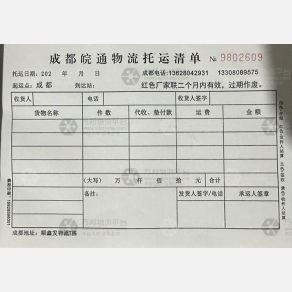 成都皖通物流托运清单 № 9802609
托运日期：202 年 月 日 成都电话：13628042931 13308089575
起运点：成都 到达站： 红色厂家联二个月内有效，过期作废。
收货人 电话 收货人签字
货物名称 件数 代收、垫付款 运费 金额
（大写） 万 仟 佰 拾 元 合计
备注： 发货人签字/电话 承运人签章
成都地址：